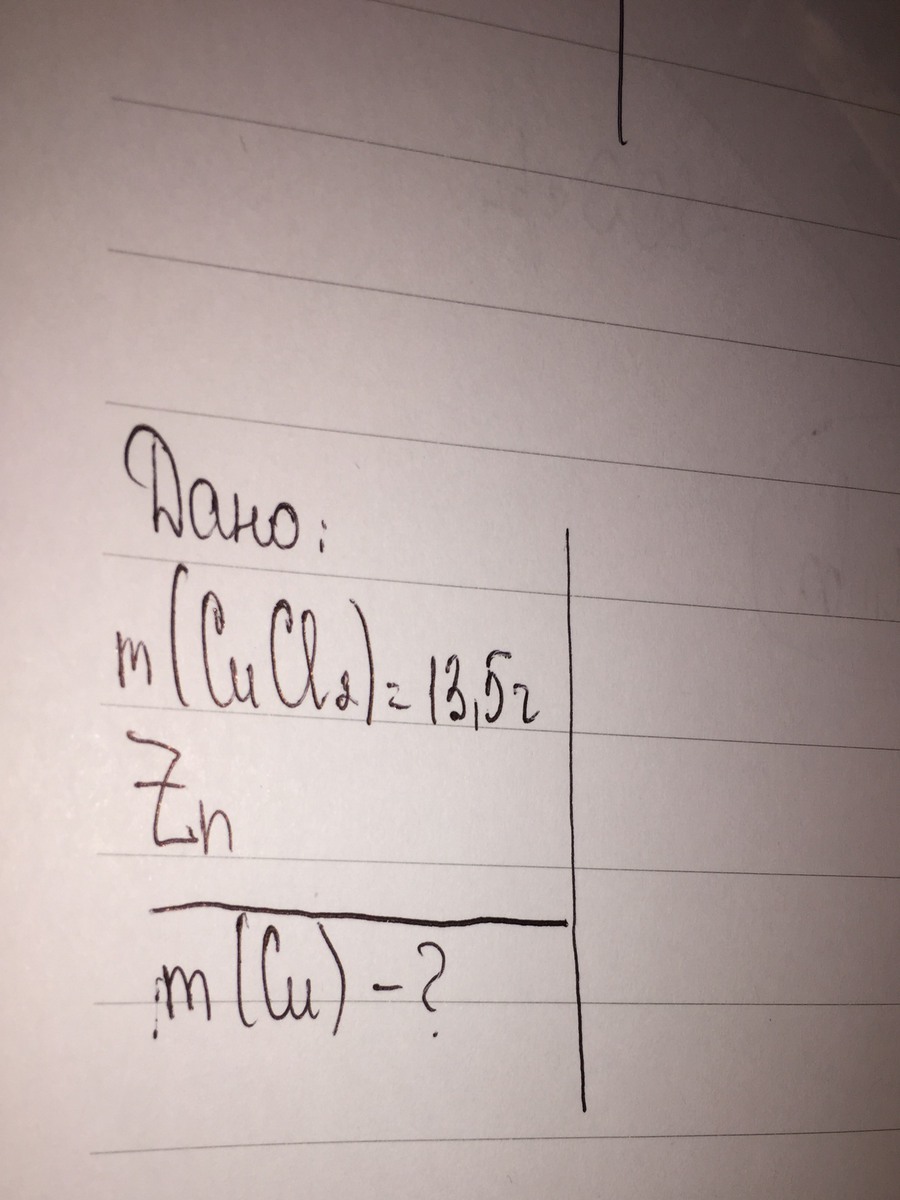 Дано:
m(CuCl₂)=13,5г
Zn
m(Cu)-?